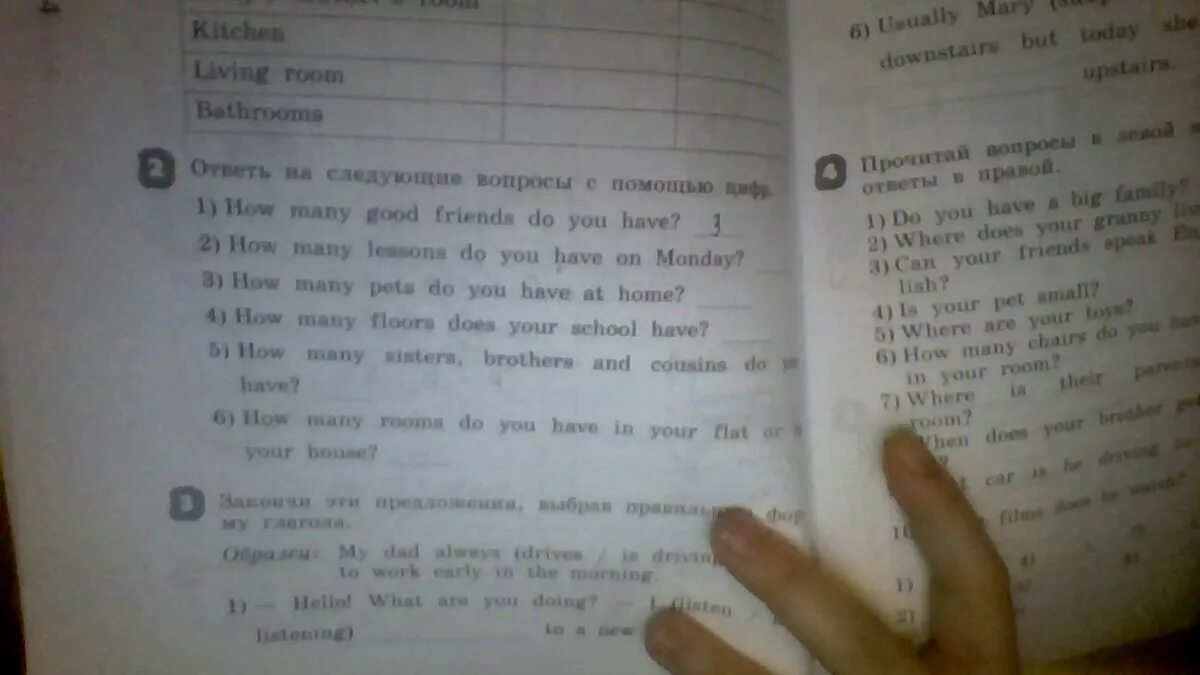 room
Kitchen
Living room
Bathrooms
2 Ответь на следующие вопросы с помощью цифр.
1) How many good friends do you have? 3
2) How many lessons do you have on Monday?
3) How many pets do you have at home?
4) How many floors does your school have?
5) How many sisters, brothers and cousins do
have?
6) How many rooms do you have in your flat or
your house?
3 Закончи эти предложения, выбрав
му глагола.
Образец: My dad always (drives / is
to work early in the morning.
1) — Hello! What are you doing? — I (listen /
listening) to a new
6) Usually Mary
downstairs but today she
upstairs.
4 Прочитай вопросы в левой
ответы в правой.
1) Do you have a big family?
2) Where does your granny
3) Can your friends speak
lish?
4) Is your pet small?
5) Where are your toys?
6) How many chairs do you
in your room?
7) Where is their
room?
does your brother
car is he driving
films does he watch?
1)
2)